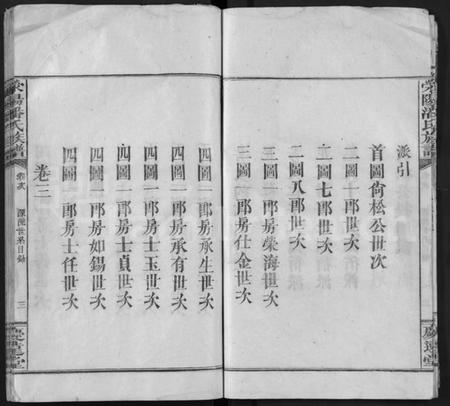 滎陽潘氏族譜
慶遠堂
派引
首圖尙松公世次
二圖十一郎世次
二圖七郎世次
二圖八郎世次
三圖一郎房榮海世次
三圖一郎房仕金世次
四圖二郎房承生世次
四圖一郎房承有世次
四圖一郎房士玉世次
四圖一郎房士貞世次
四圖一郎房如錫世次
四圖一郎房士任世次
卷三
滎陽潘氏族譜
卷次
源流世系目錄
三
慶遠堂